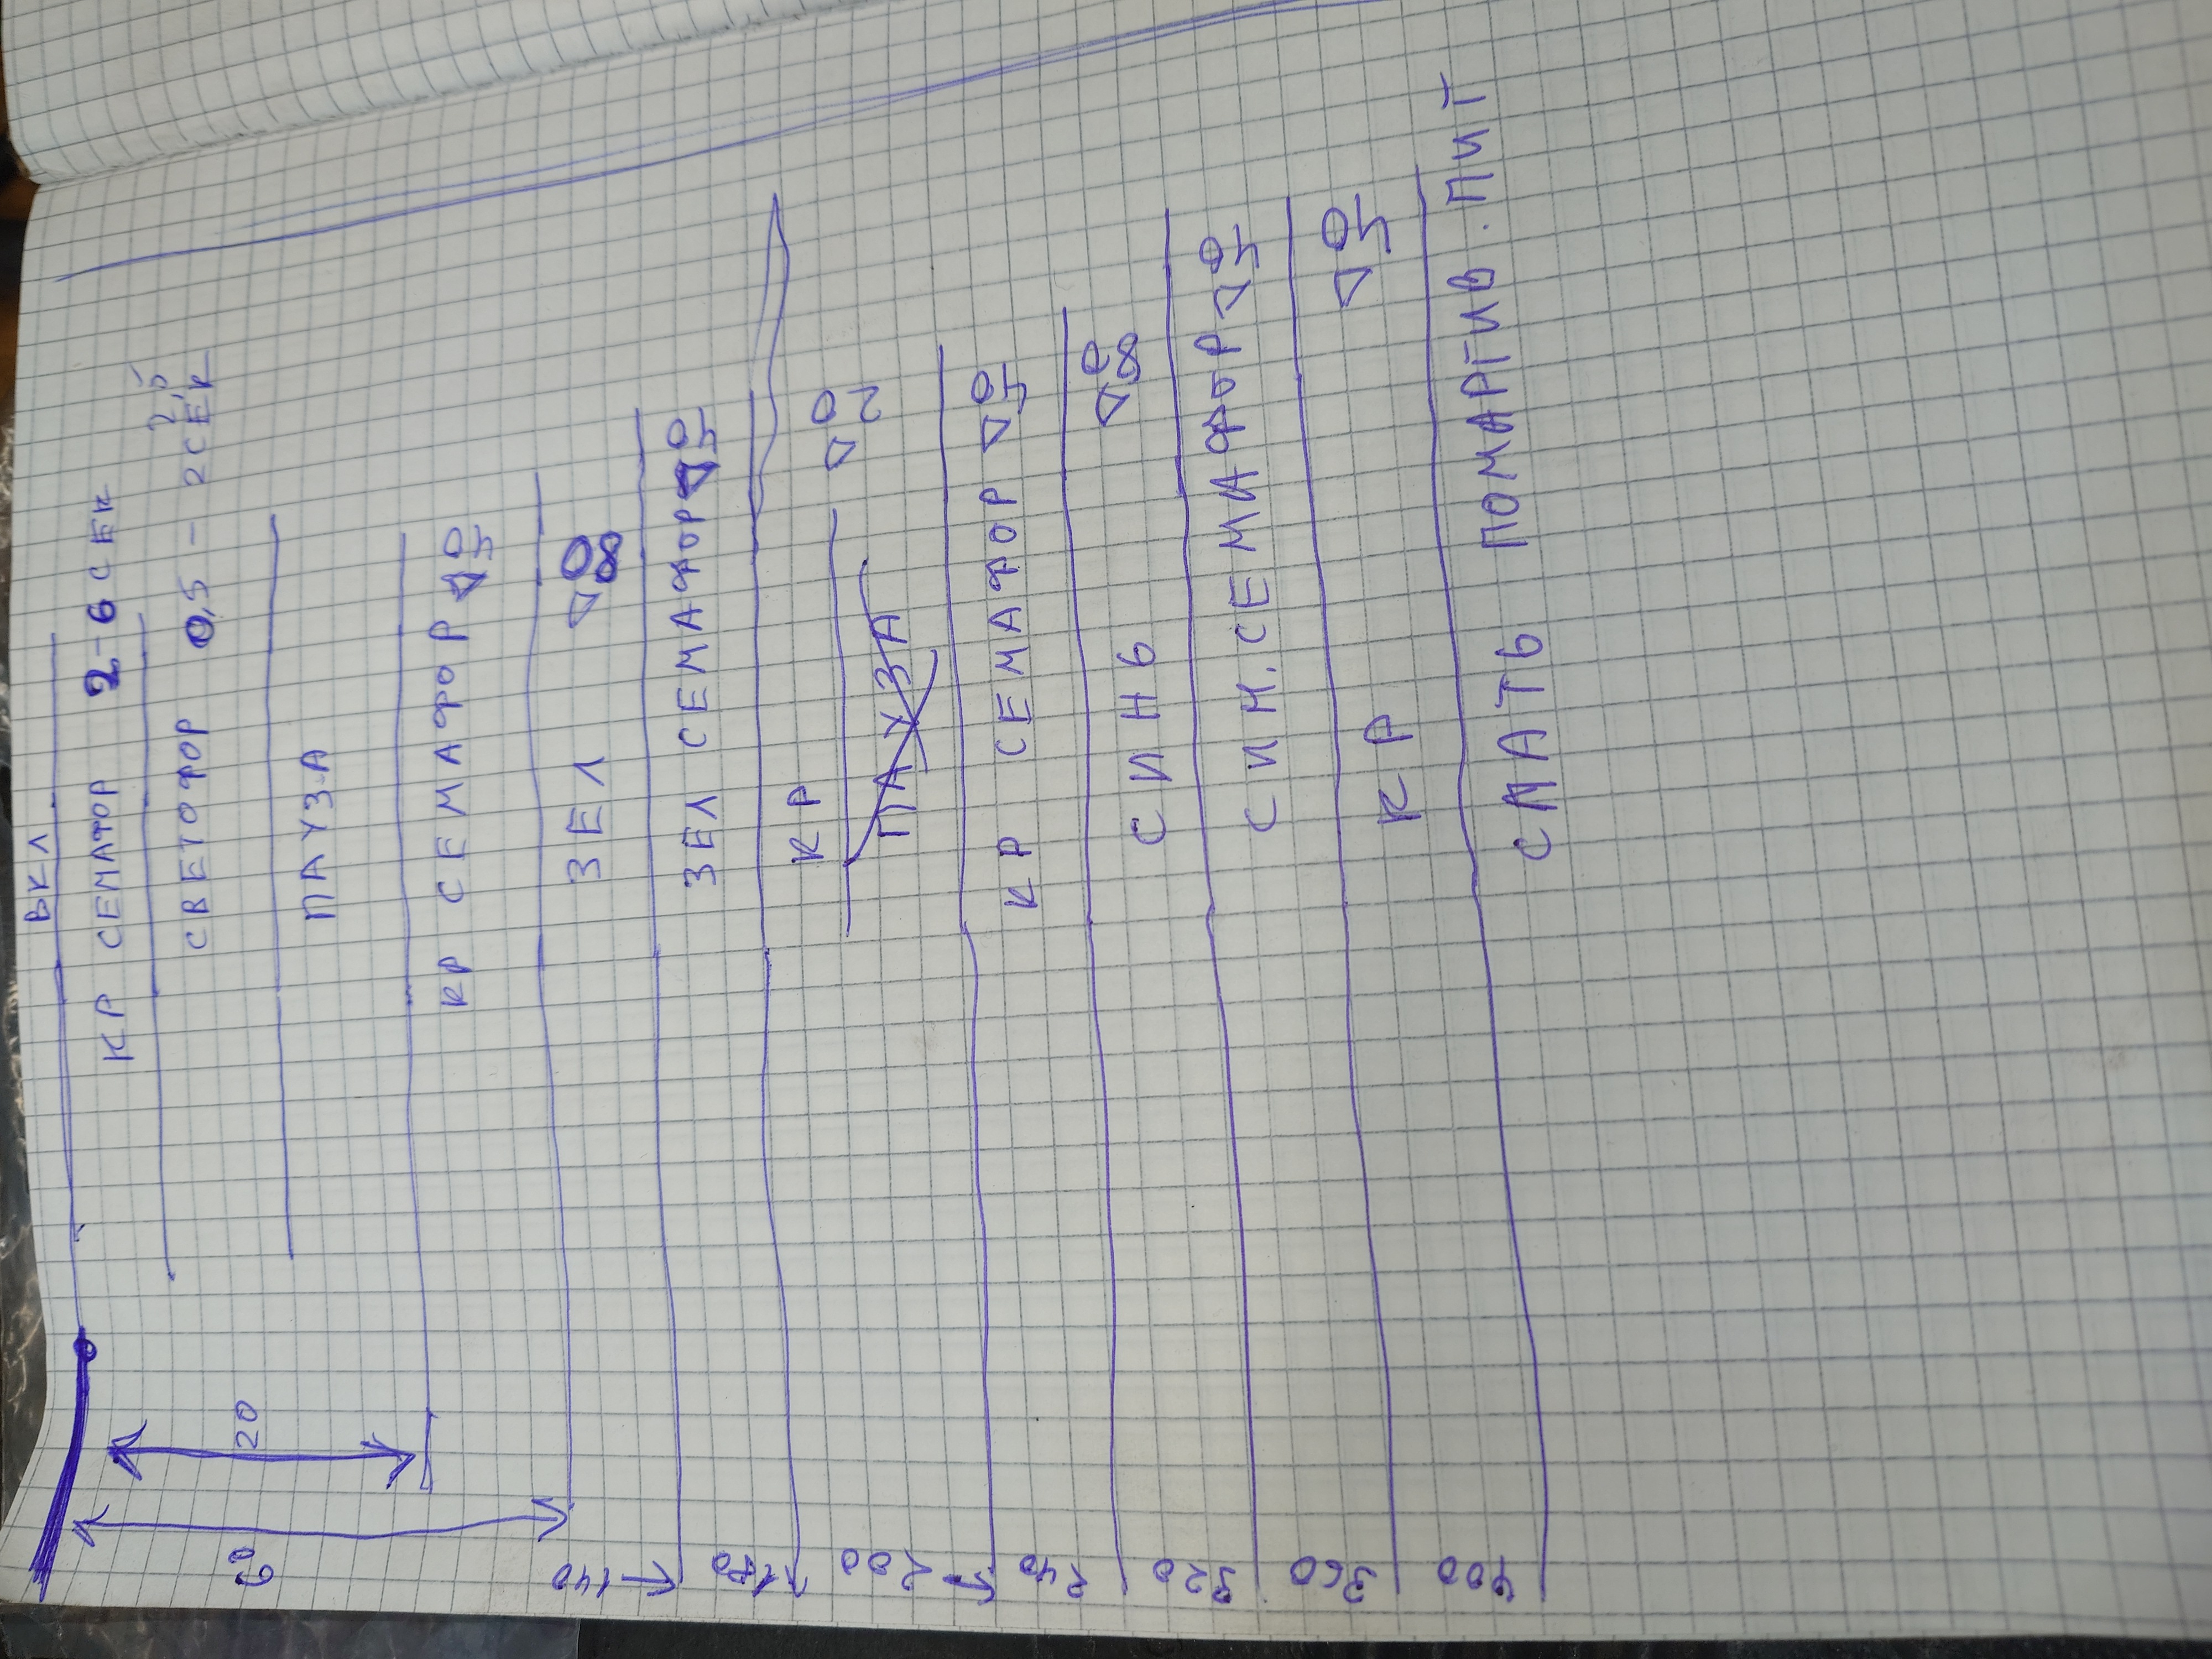 ВКЛ
КР СЕМАФОР 2-6 СЕК
2,5
СВЕТОФОР 0,5 - 2 СЕК
60
20
ПАУЗА
КР СЕМАФОР Δ 40
ЗЕЛ Δ 80
140
ЗЕЛ СЕМАФОР Δ 40
180
КР
Δ 20
ПАУЗА
200
КР СЕМАФОР Δ 40
240
СИНЬ Δ 80
320
СИН. СЕМАФОР Δ 40
360
КР Δ 40
400
СПАТЬ ПОМАРГИВ. ПИТ